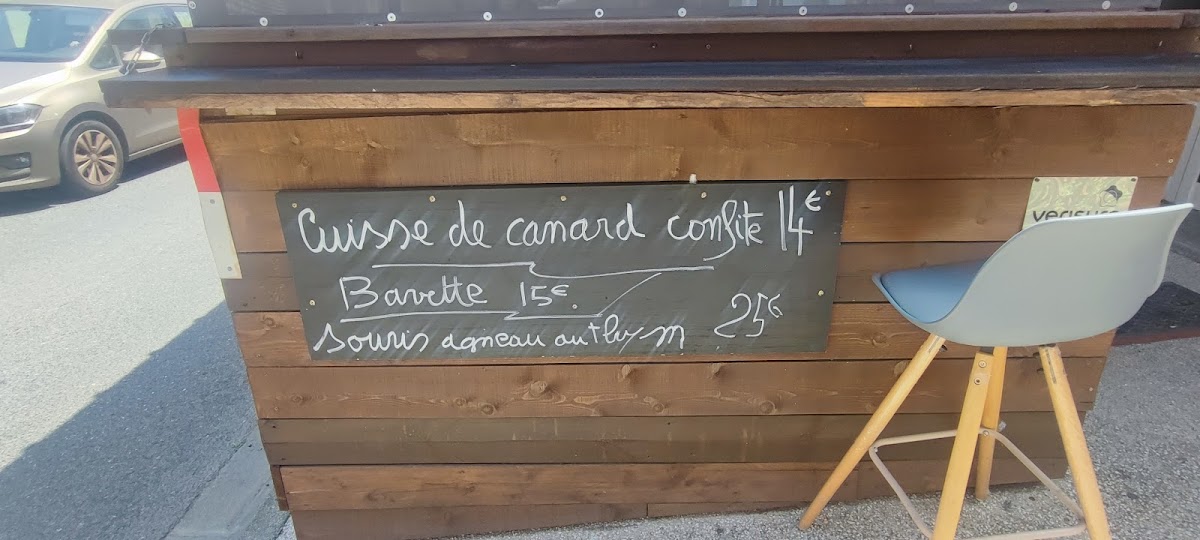 Cuisse de canard confite 14€
Bavette 15€
Souris agneau au thym 25€
verisure